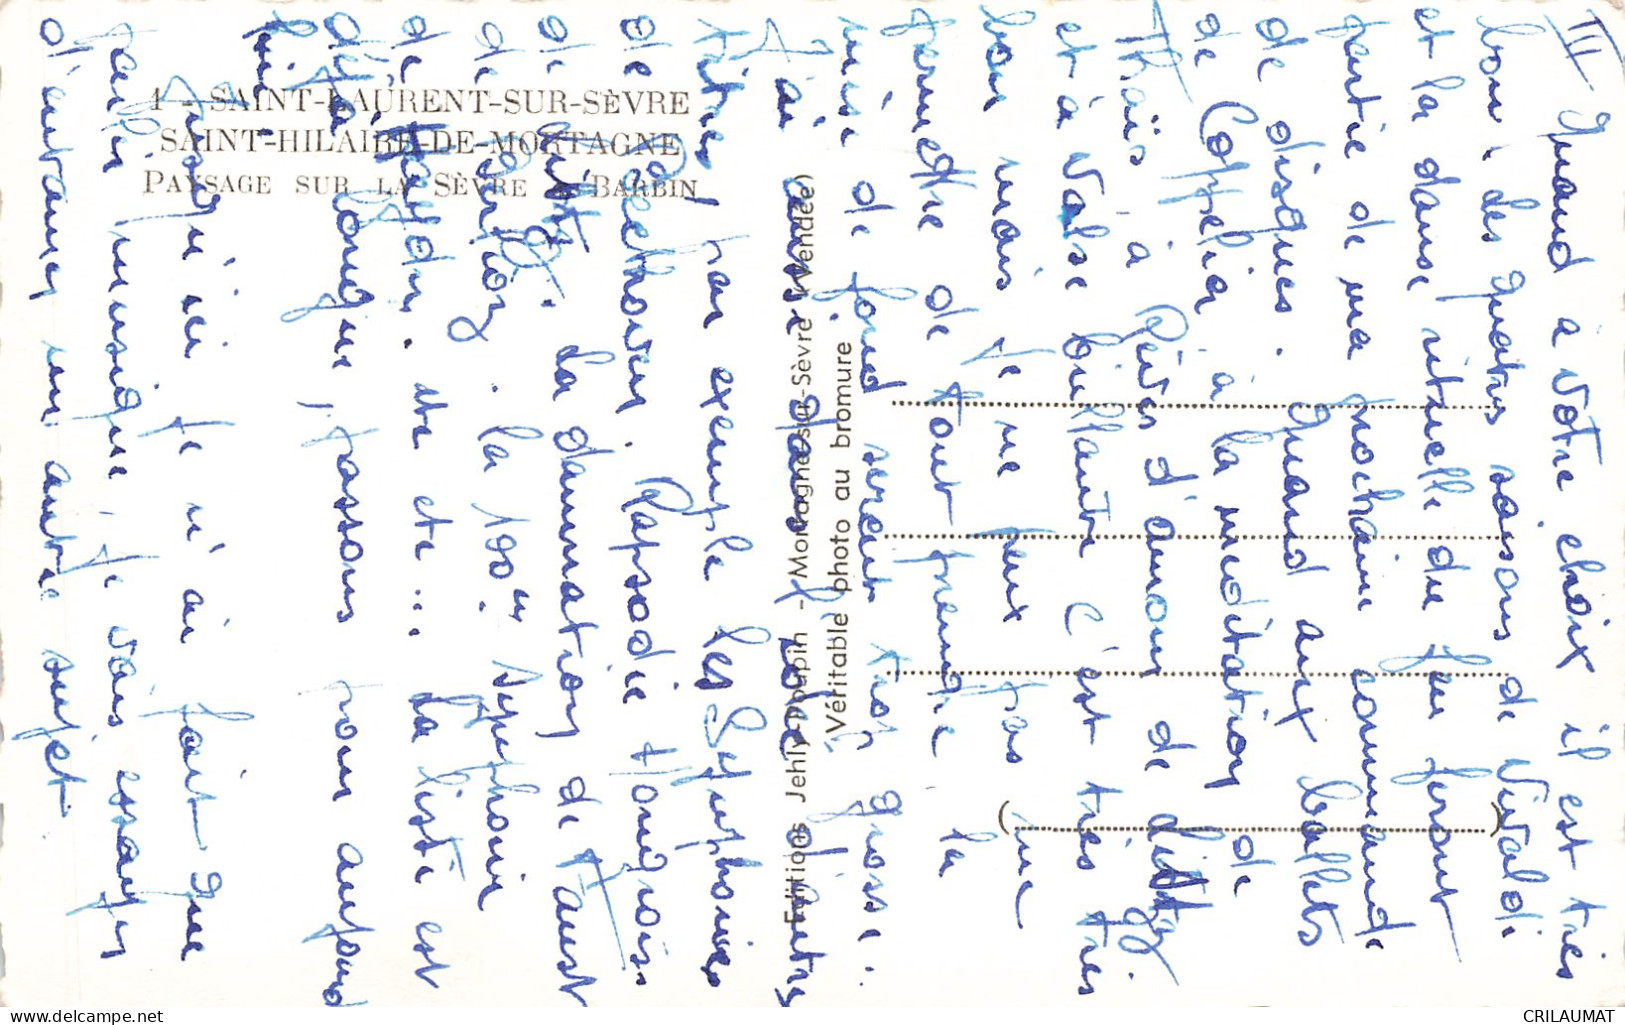 III Quand à votre choix il est très
bon. Les quatres saisons de Vivaldi
et la danse rituelle du feu feront
partie de ma prochaine commande
de disques. Quand aux ballets
de Coppelia à la méditation de
Thaïs à Rêves d'amour de Listz
et à Valse brillante c'est très très
bon mais je ne peux pas me
permettre de tout prendre la
mise de fond serait trop grosse..
J'ai aussi pas mal d'autres
titres par exemple les Symphonies
de Beethoven. Rapsodie Hongroise
de Listz. La damnation de Faust
de Berlioz. la 100em Symphonie
de Haydn. etc etc.. La liste est
déjà longue, passons pour aujourd
hui
Jusqu'ici je n'ai fait que
parler musique, je vais essayer
d'entamer un autre sujet.
1 - SAINT-LAURENT-SUR-SÈVRE
SAINT-HILAIRE-DE-MORTAGNE
PAYSAGE SUR LA SÈVRE A BARBIN
Editions Jehly-Poupin - Mortagne-sur-Sèvre (Vendée)
Véritable photo au bromure
delcampe.net
CRILAUMAT